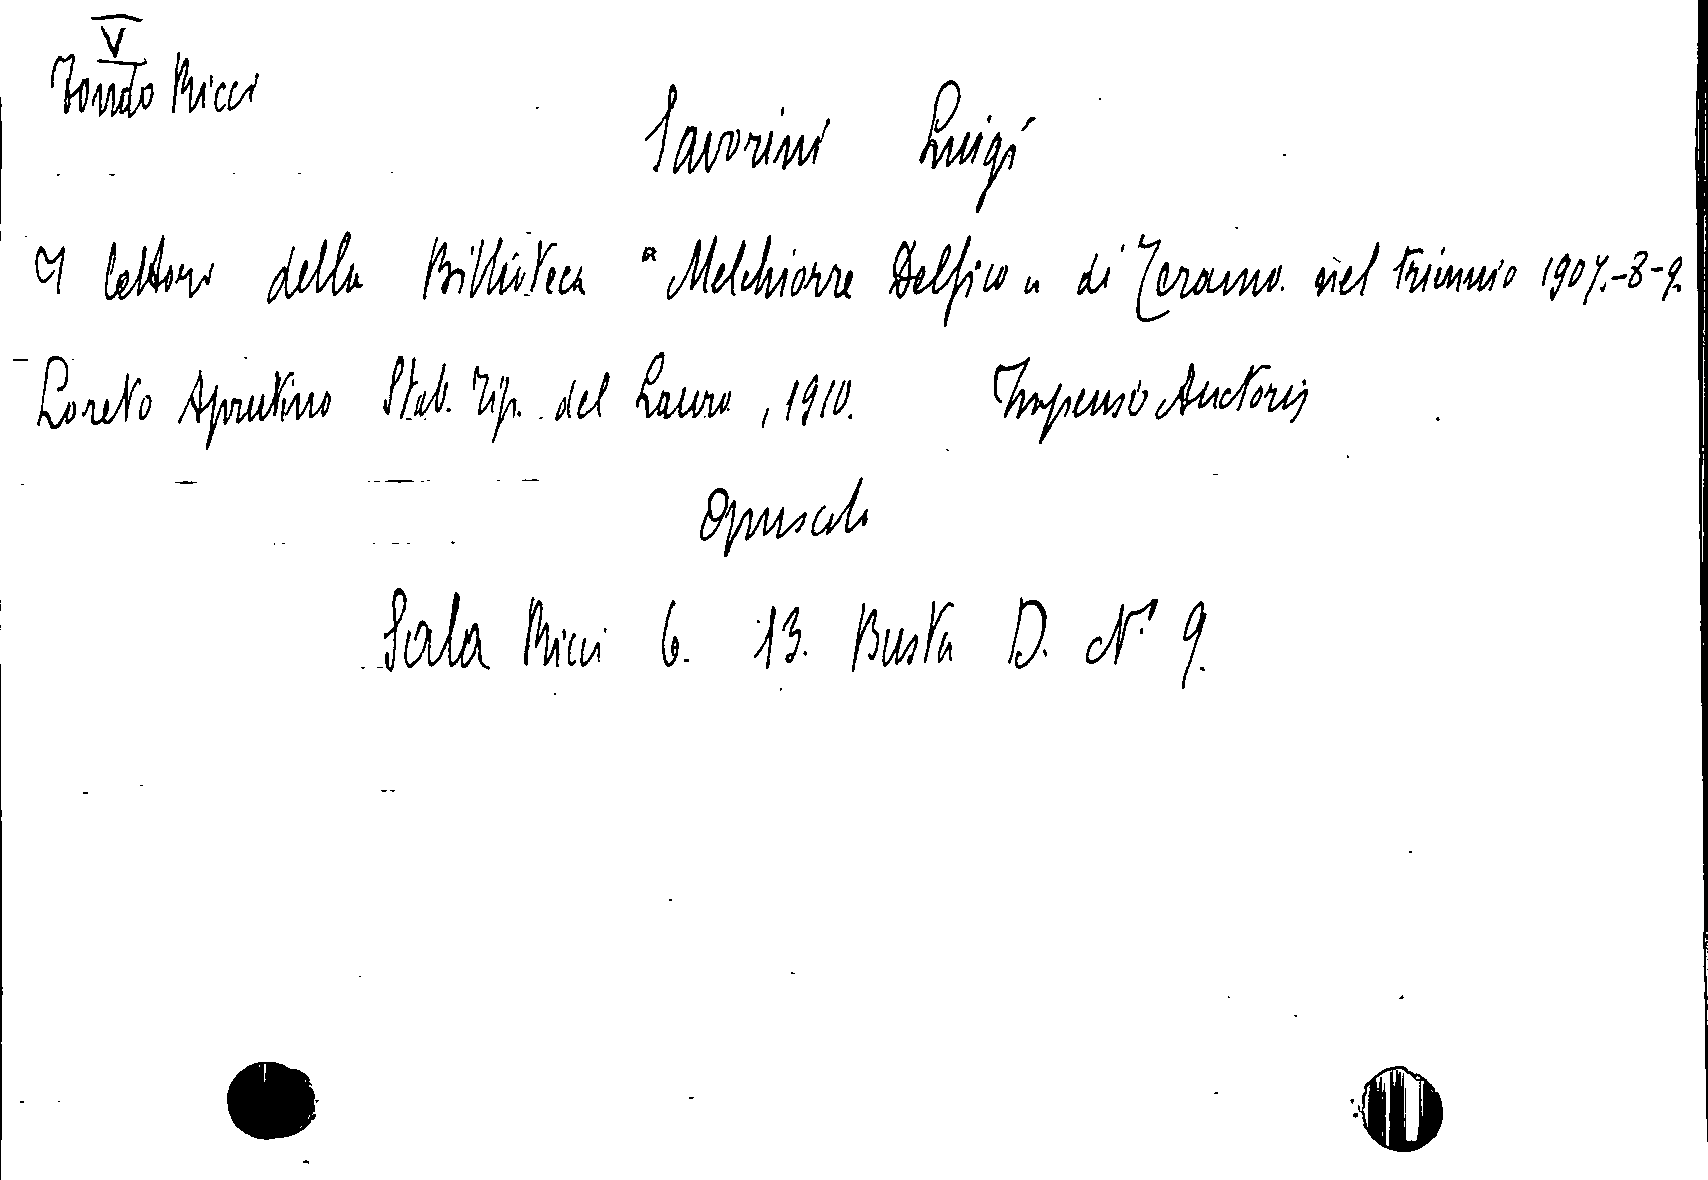 V
Fondo Ricci
Savorini Luigi
I lettori della Biblioteca "Melchiorre Delfico" di Teramo. nel triennio 1907.-8-9.
Loreto Aprutino Stab. Tip. del Lauro, 1910. Impensis Auctoris
Opuscolo
Sala Ricci 6. 13. Busta D. N.º 9.